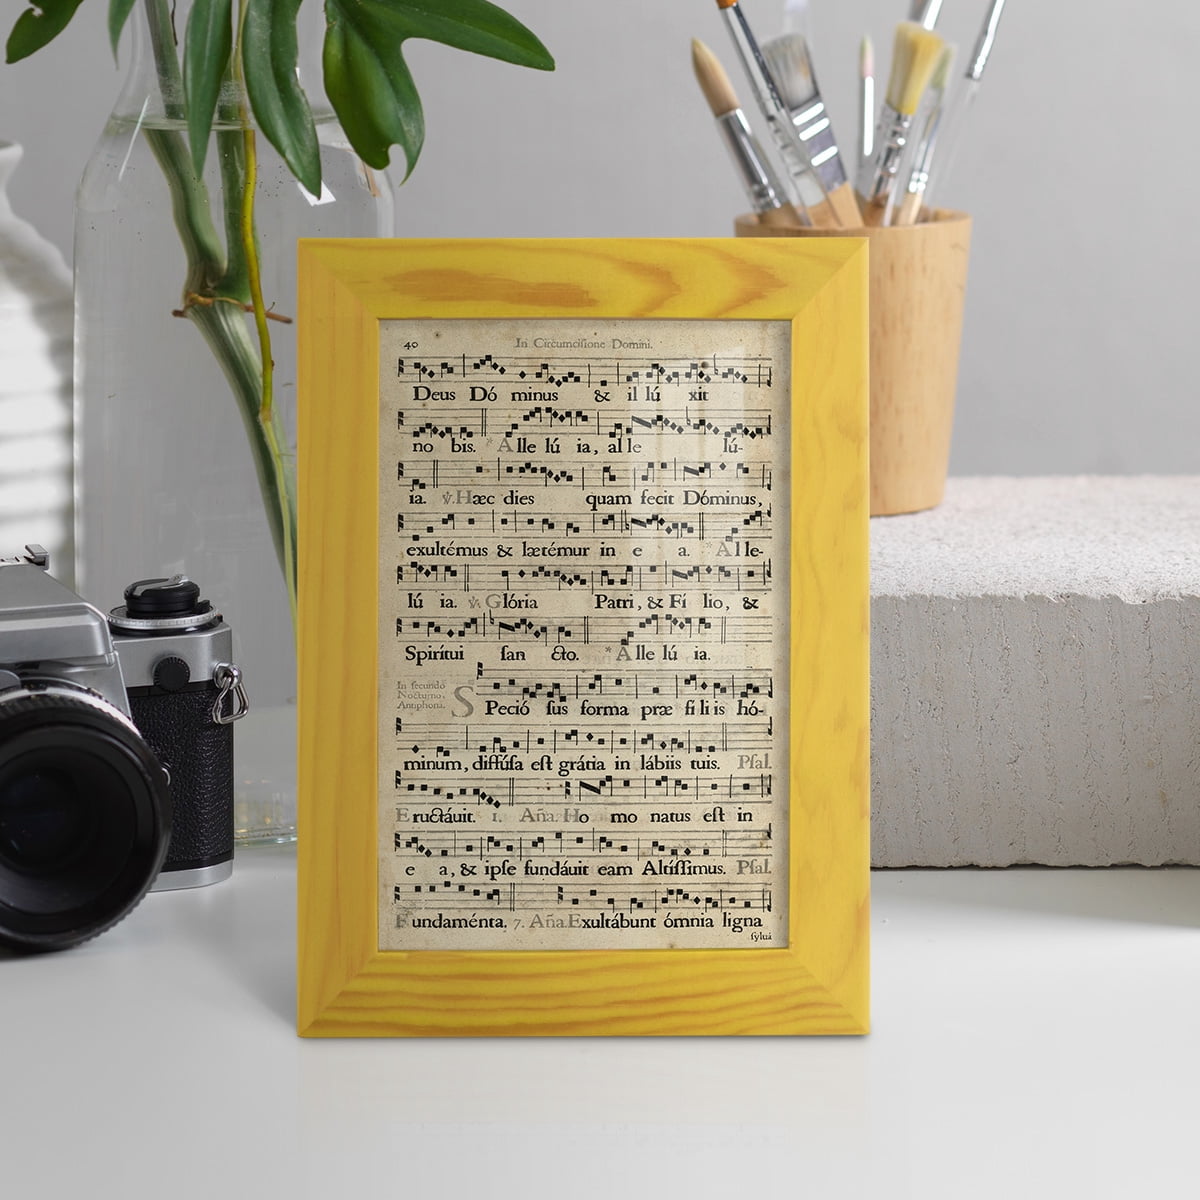 40 In Circumcisione Domini.
Deus Dó minus & il lú xit
no bis. * Alle lú ia, al le lú-
ia. ℣. Hæc dies quam fecit Dóminus,
exultémus & lætémur in e a. Alle-
lú ia. ℣. Glória Patri, & Fí lio, &
Spirítui ſan cto. * Alle lú ia.
In ſecundo
Nocturno.
Antiphona.
SPeció ſus forma præ fi li is hó-
minum, diffúſa eſt grátia in lábiis tuis. Pſal.
Eructáuit. 1. Aña. Ho mo natus eſt in
e a, & ipſe fundáuit eam Altíſſimus. Pſal.
Fundaménta. 7. Aña. Exultábunt ómnia ligna
ſyluá